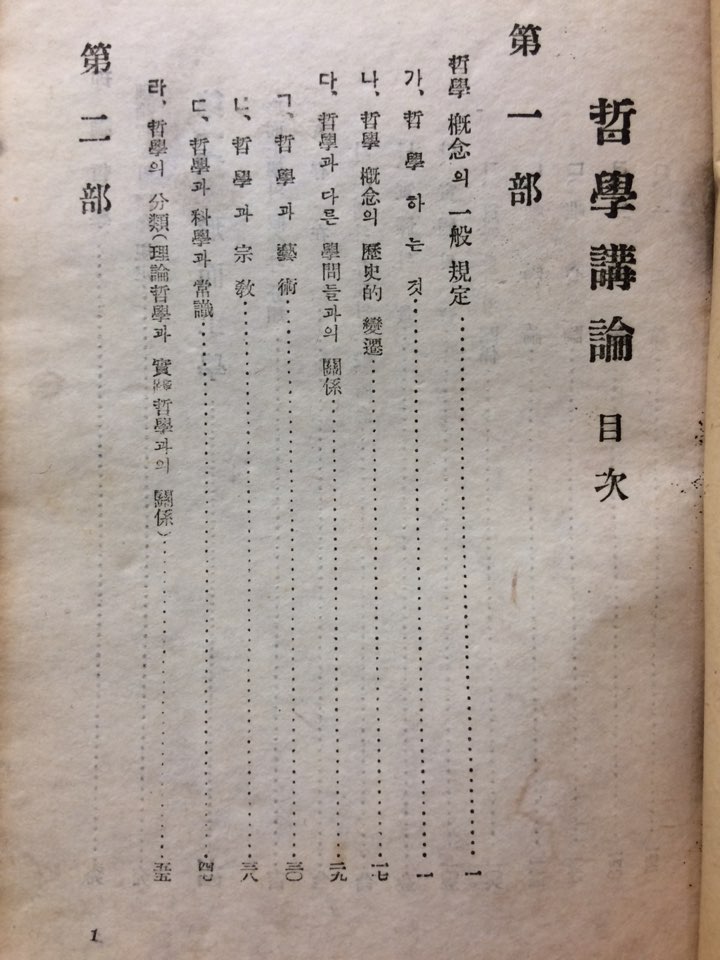 哲學講論 目次
第一部
哲學 槪念의 一般 規定 一
가、哲學하는 것 一
나、哲學 槪念의 歷史的 變遷 一七
다、哲學과 다른 學問들과의 關係 二九
ㄱ、哲學과 藝術 三〇
ㄴ、哲學과 宗敎 三八
ㄷ、哲學과 科學과 常識 四七
라、哲學의 分類(理論哲學과 實踐哲學과의 關係) 五五
第二部
1